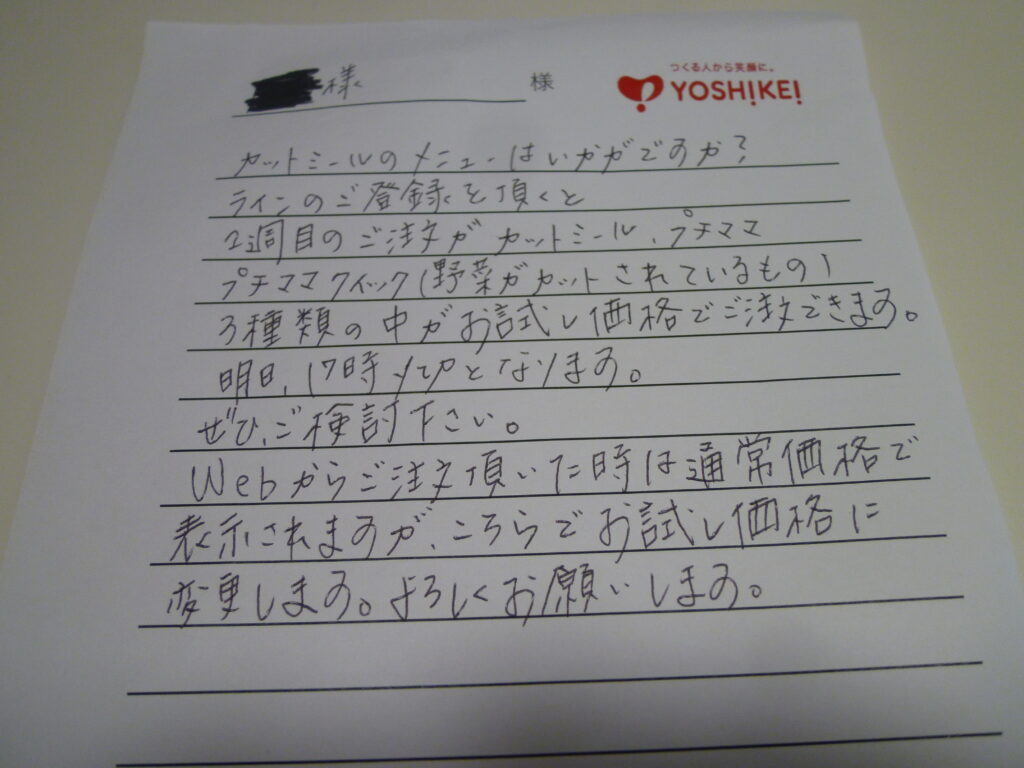 様 様
つくる人から笑顔に。
YOSHIKEI
カットミールのメニューはいかがですか？
ラインのご登録を頂くと
2週目のご注文が カットミール、プチママ
プチママクイック(野菜がカットされているもの)
3種類の中がお試し価格でご注文できます。
明日、17時〆切となります。
ぜひ、ご検討下さい。
Webからご注文頂いた時は通常価格で
表示されますが、こちらでお試し価格に
変更します。よろしくお願いします。